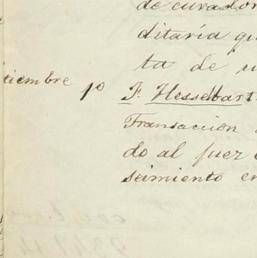 de curador
ditaria qu
ta de u
tiembre 1º F. Hesselbart
Transacción
do al juez
seimiento en